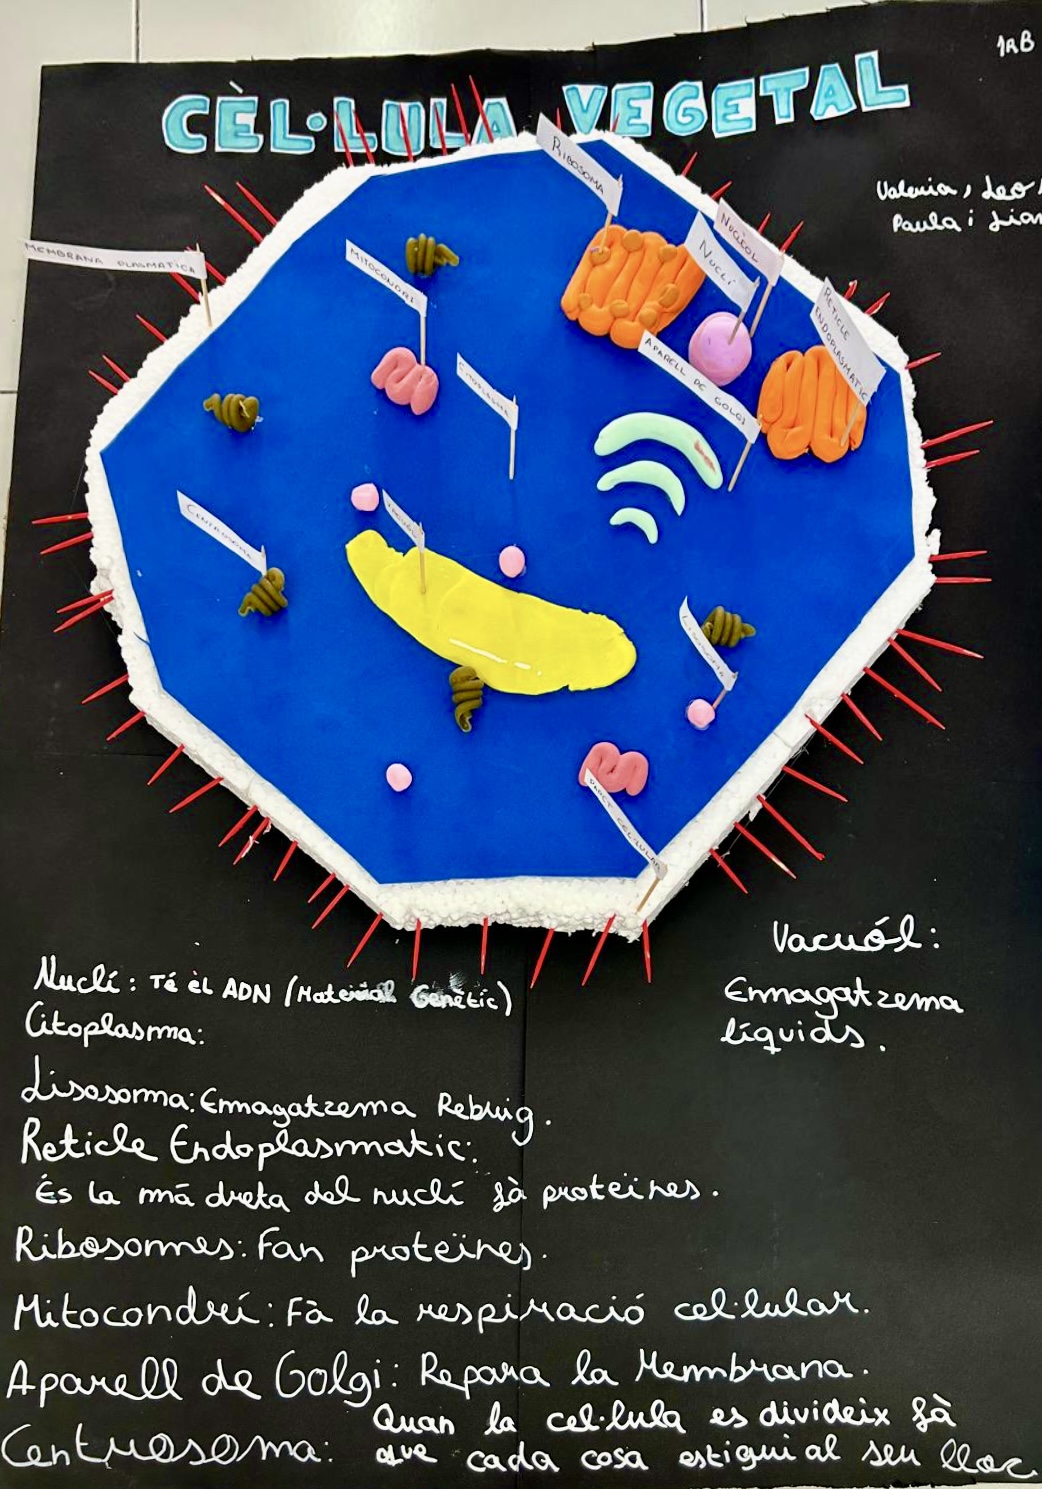 1RB
CÈL·LULA VEGETAL
Valeria, Leo
Paula i
RIBOSOMA
NUCLÈOL
NUCLI
MEMBRANA PLASMATICA
MITOCONDRI
RETICLE
ENDOPLASMATIC
APARELL DE GOLGI
CITOPLASMA
CENTROSOMA
LISOSOMA
PARET CEL·LULAR
Vacuól:
Emmagatzema
líquids.
Nuclí: Té èl ADN (Material Genètic)
Citoplasma:
Lisosoma: Emmagatzema Rebuig.
Reticle Endoplasmatic:
És la mà dreta del nuclí fà proteïnes.
Ribosomes: Fan proteïnes.
Mitocondrí: Fà la respiració cel·lular.
Aparell de Golgi: Repara la Membrana.
Centrosoma: Quan la cel·lula es divideix fà
que cada cosa estigui al seu lloc